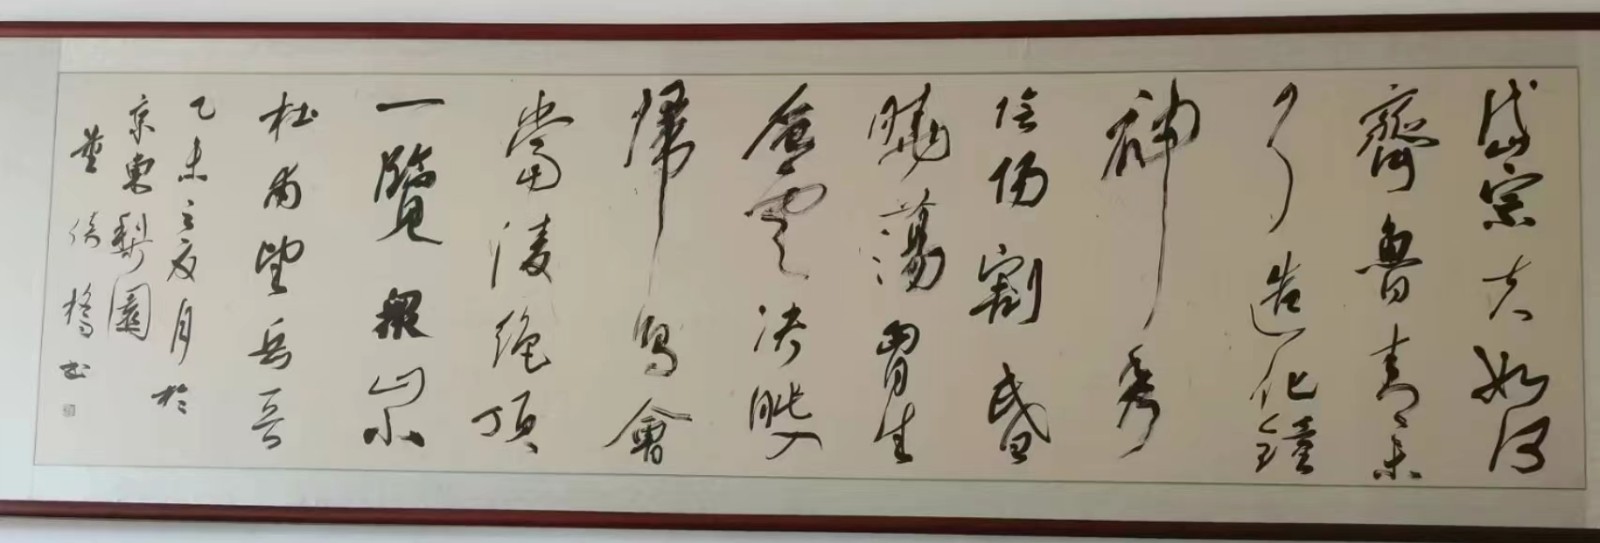 岱宗夫如何
齊魯青未
了造化鐘
神秀
陰陽割昏
曉蕩胷生
層雲决眦入
歸鳥會
當凌絕頂
一覽衆山小
杜甫望岳吾
乙未之夏月於
京東梨園
董
書